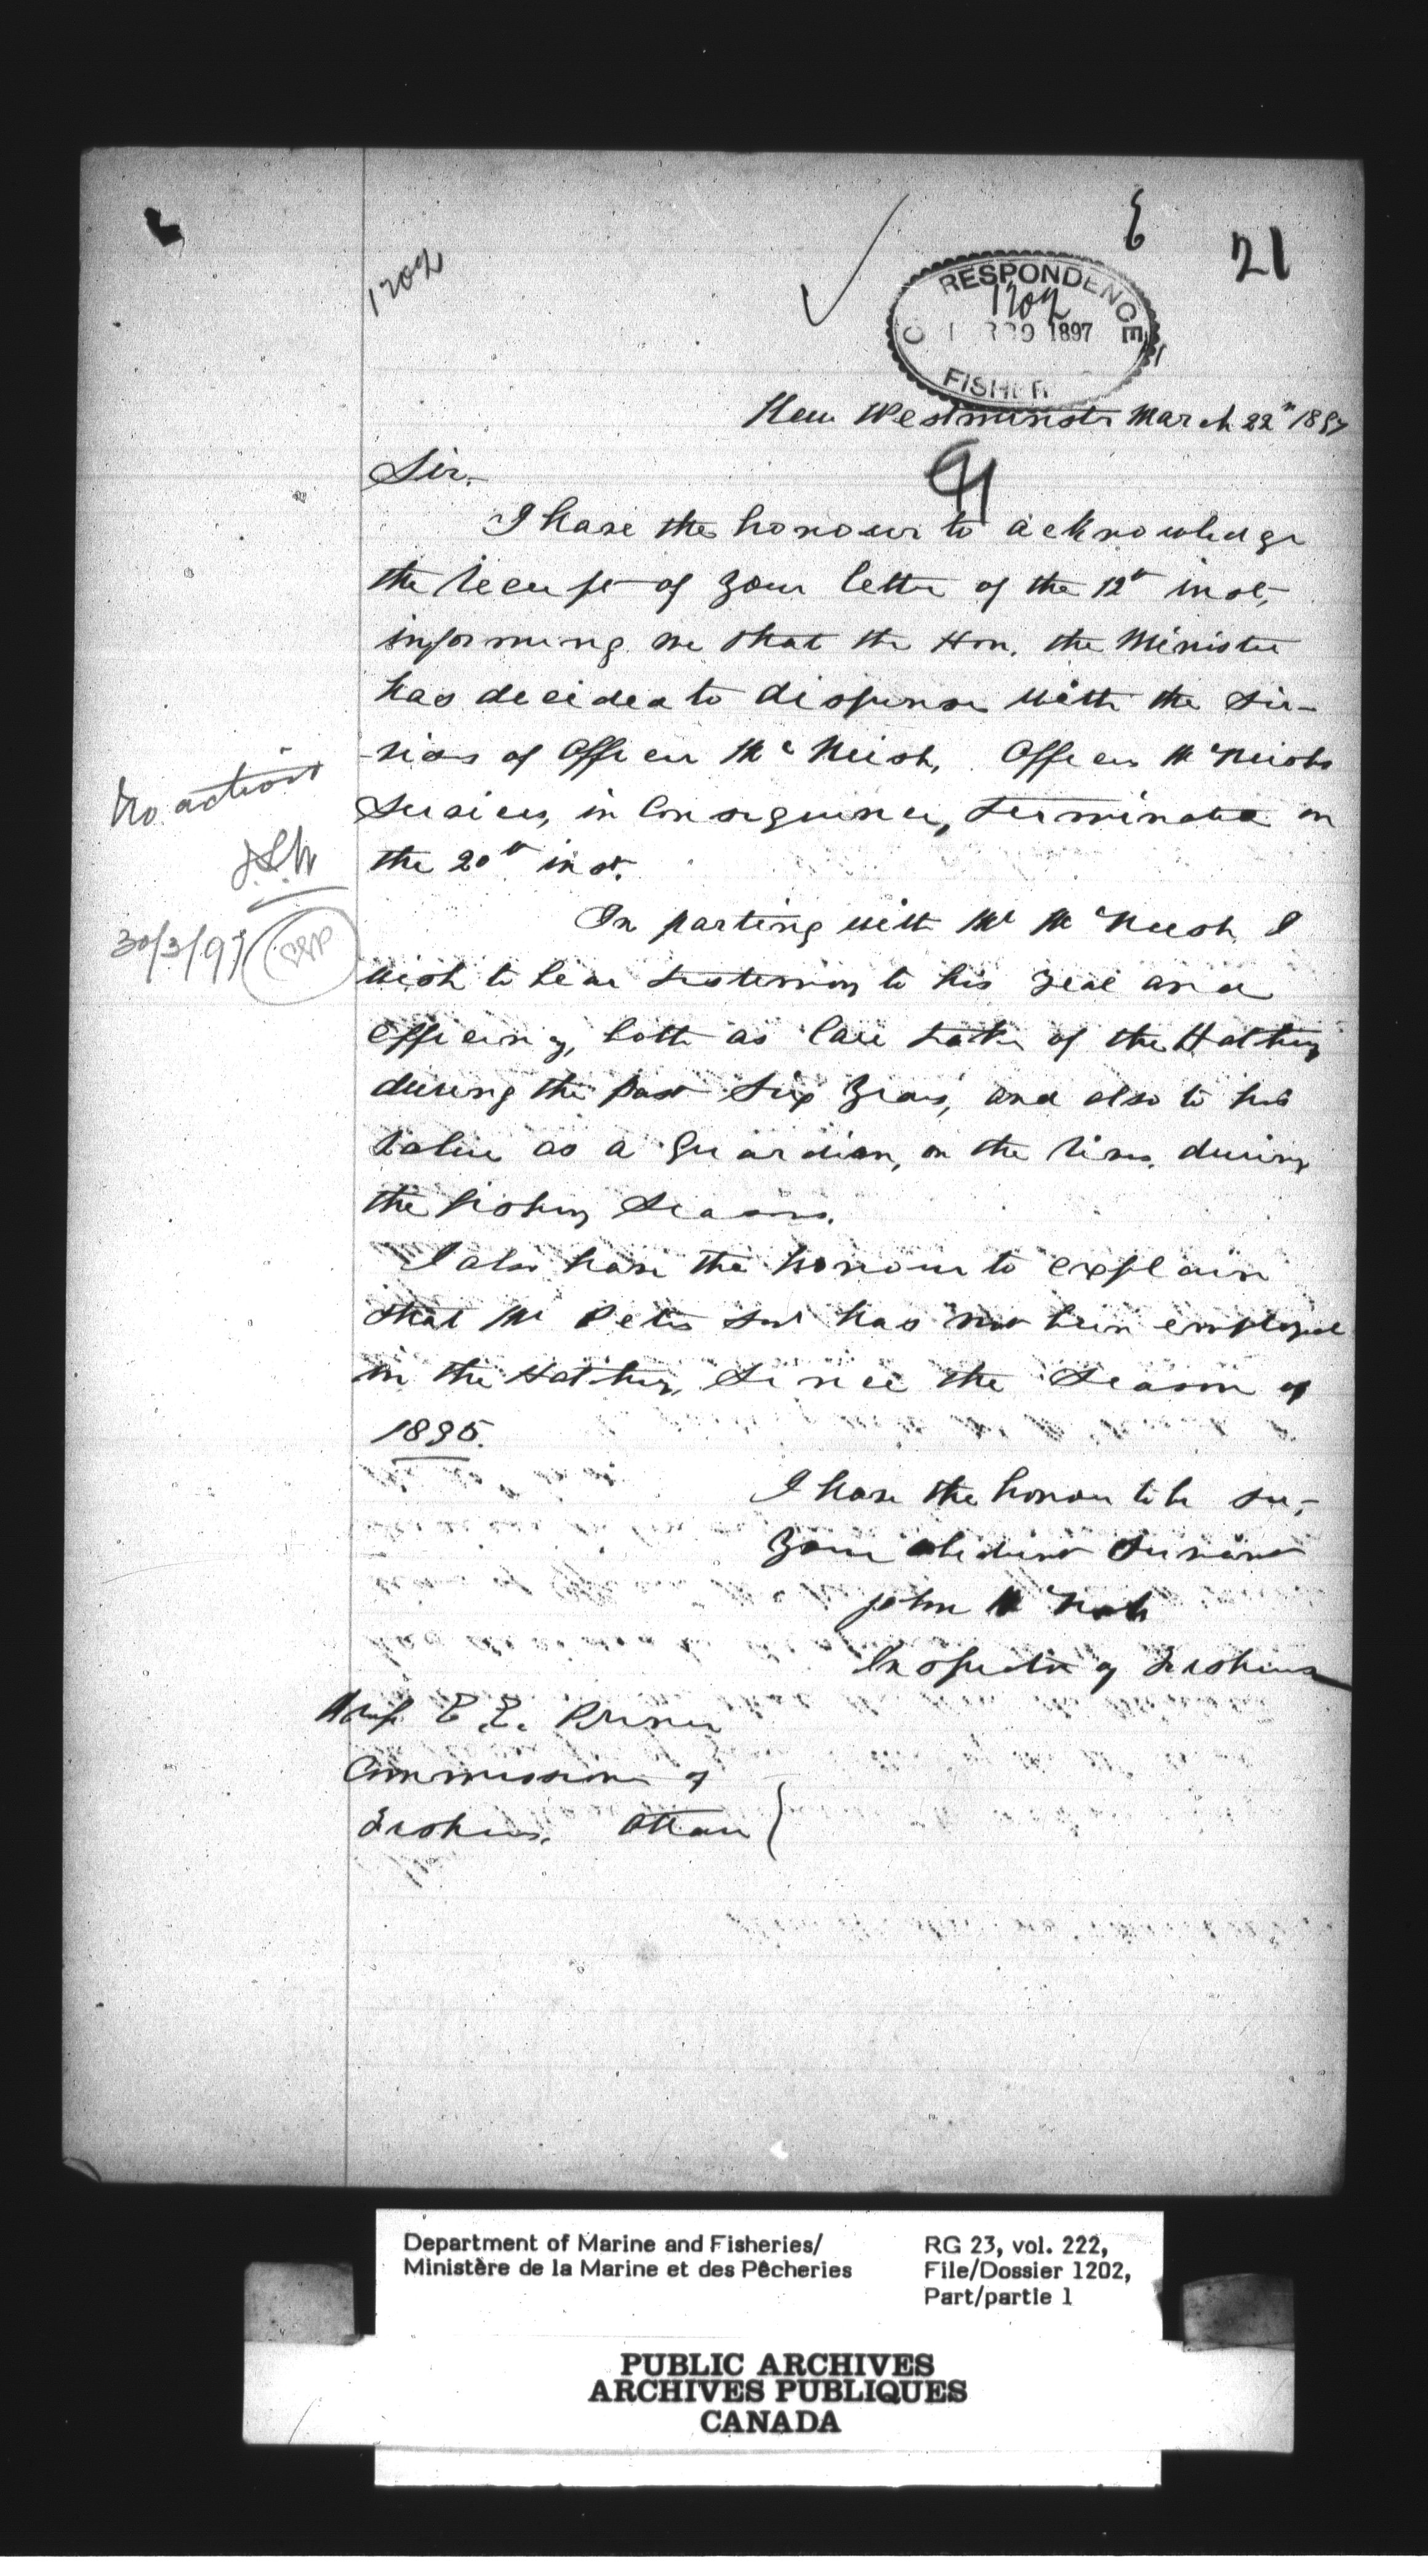 1202
21
CORRESPONDENCE
1202
1897
FISHER
New Westminster March 22nd 1897
91
Sir.
I have the honour to acknowledge
the receipt of your letter of the 12th inst,
informing me that the Hon. the Minister
has decided to dispense with the Ser-
-vices of Officer McNeish. Officer McNeishs
Services, in Consequence, terminated on
the 20th inst.
In parting with Mr McNeish I
wish to bear testimony to his zeal and
efficiency, both as Care taker of the Hatchery
during the past Six Years, and also to his
value as a Guardian, on the river, during
the fishing Season.
I also have the honour to explain
that Mr Peter has not been employed
in the Hatchery, Since the Season of
1895.
I have the honour to be Sir,
Your obedient Servant
John McNab
Inspector of Fisheries
Prof. E. E. Prince
Commissioner of
Fisheries. Ottawa
No action
30/3/97
Department of Marine and Fisheries/
Ministère de la Marine et des Pêcheries
RG 23, vol. 222,
File/Dossier 1202,
Part/partie 1
PUBLIC ARCHIVES
ARCHIVES PUBLIQUES
CANADA